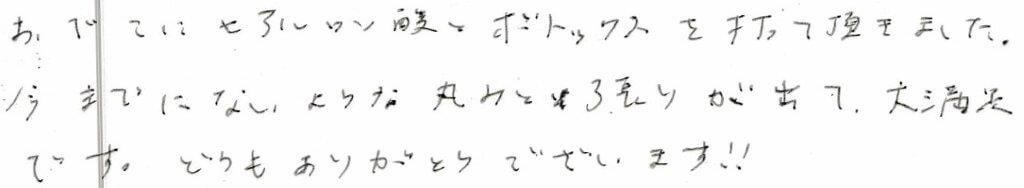 おでこにヒアルロン酸とボトックスを打って頂きました。
今までにないような丸みとハリが出て、大満足
です。どうもありがとうございます!!